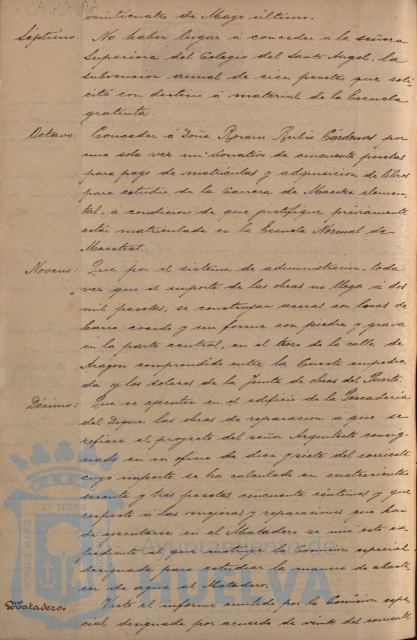 veinticuatro de Mayo último.
Séptimo: No haber lugar a conceder a la señora
Superiora del Colegio del Santo Angel, la
subvencion anual de cien pesetas que soli-
citó con destino á material de la Escuela
gratuita.
Octavo: Conceder á Doña Rosario Rubio Cárdenas por
una sola vez un donativo de cincuenta pesetas
para pago de matrículas y adquisicion de libros
para estudio de la Carrera de Maestra elemen-
tal, á condicion de que justifique préviamente
estár matriculada en la Escuela Normal de
Maestras.
Noveno: Que por el sistema de administracion, toda
vez que el importe de las obras no llega á dos
mil pesetas, se construyan aceras con losas de
barro cocido y un firme con piedra y grava
en la parte central, en el trozo de la calle de
Aragon comprendido entre la Cuesta empedra-
da y los solares de la Junta de obras del Puerto.
Décimo: Que se ejecuten en el edificio de la Pescadería
del Dique las obras de reparacion a que se
refiere el proyecto del señor Arquitecto consig-
nado en su oficio de diez y siete del corriente
cuyo importe se ha calculado en cuatrocientas
sesenta y tres pesetas cincuenta céntimos y que
respecto a las mejoras y reparaciones que han
de ejecutarse en el Matadero se una este ex-
pediente al que instruye la Comision especial
designada para estudiar la manera de abaste-
cer de agua al Matadero.
Matadero. Visto el informe emitido por la Comision espe-
cial designada por acuerdo de veinte del corriente
ET TERRAE
PORTUS MARIS
Ayuntamiento de
HUELVA